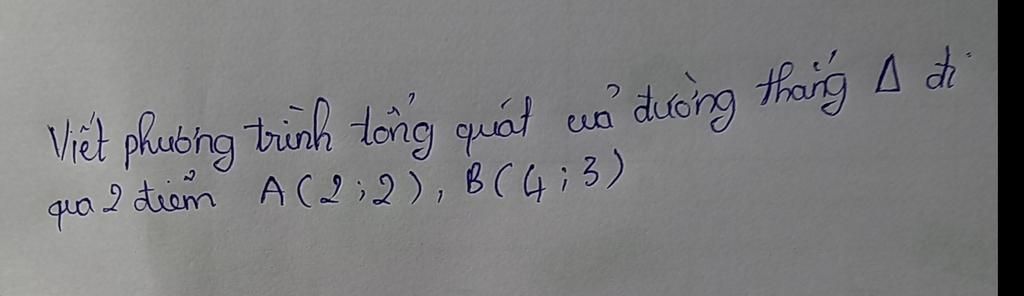 Viết phương trình tổng quát của đường thẳng Δ đi
qua 2 điểm A(2;2), B(4;3)